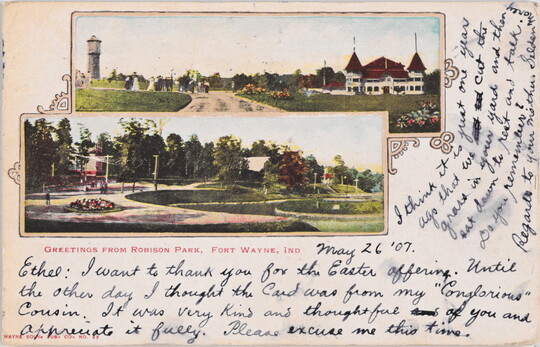 GREETINGS FROM ROBISON PARK, FORT WAYNE, IND
May 26 '07.
Ethel: I want to thank you for the Easter offering. Until
the other day I thought the Card was from my "Conglorious"
Cousin. It was very Kind and thoughtful of you and
appreciate it fully. Please excuse me this time.
WAYNE BOOK
CO. NO.
I think it is just one year
ago that we cut the
grass in your yard and then
sat down to rest and talk.
Do you remember?
Regards to your mother